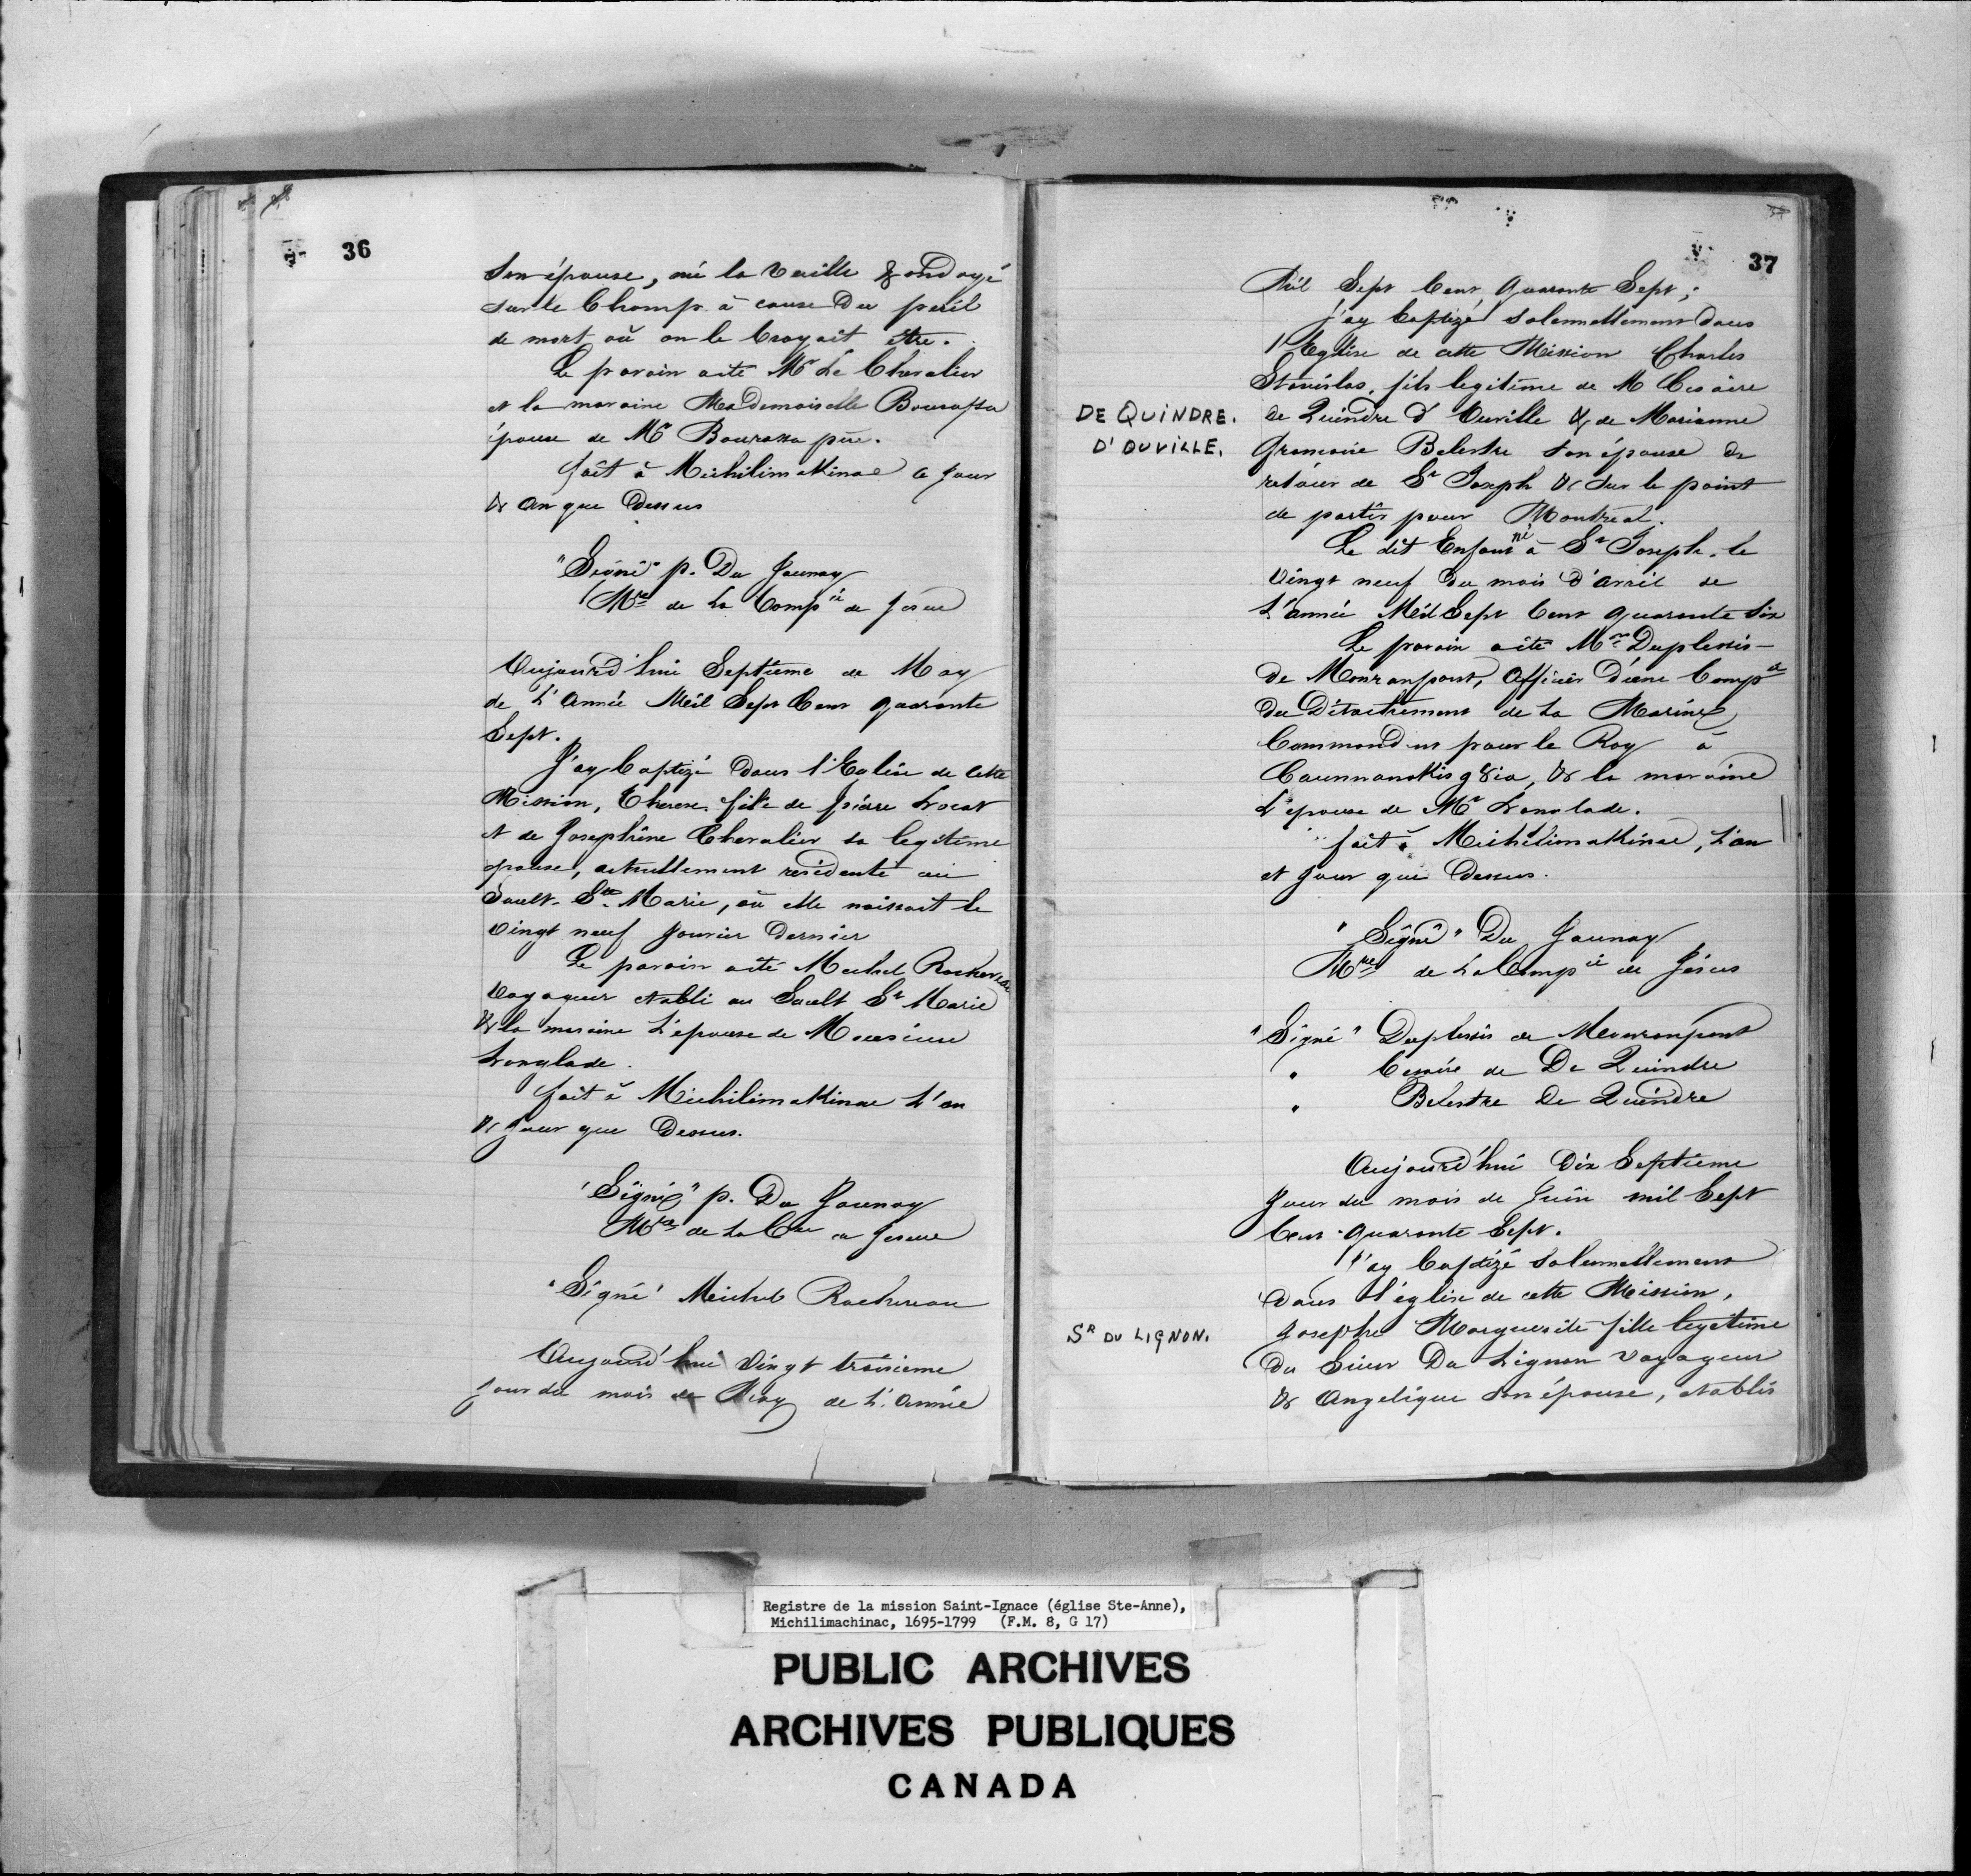 36
Son épouse, né la Veille & ondoyé
sur le Champ à cause Du peril
de mort où on le Croyait être.
Le parain a eté Mr Le Chevalier
et la maraine Mademoiselle Bourassa
épouse de Mr Bourassa père.
fait à Michilimakinac ce Jour
& an que Dessus
"Signé" p. Du Jaunay
Mre de La Compie de Jesus
Aujourd'hui Septieme de May
de L'Année Mil Sept Cent quarante
Sept.
J'ay Baptizé Dans l'Eglise de Cette
Mission, Therese fille de pierre Locat
et de Josephine Chevalier sa legitime
epouse, actuellement residente au
Sault Ste Marie, où elle naissait le
Vingt neuf Janvier Dernier
Le parain a eté Michel Rochereau
Voyageur etabli au Sault St Marie
& la maraine L'epouse de Monsieur
Langlade.
fait à Michilimakinac L'an
& Jour que Dessus.
"Signé" p. Du Jaunay
Mre de La Cie de Jesus
"Signé" Michel Rochereau
Aujourd'hui Vingt troisieme
Jour du mois de May de L'Année
37
Mil Sept Cent Quarante Sept;
j'ay Baptizé Solennellement Dans
l'Eglise de cette Mission Charles
Stanislas, fils legitime de M Cesaire
DE QUINDRE.
D'OUVILLE.
de Quindre d'Ouville & de Marianne
Belestre Son épouse De
retour de St Joseph & Sur le point
de partir pour Montréal.
Le dit Enfant né à St Joseph, le
Vingt neuf Du mois D'avril de
L'année Mil Sept Cent quarante Six
Le parain a été Mr Duplessis
De Mouranpont, Officier D'une Compie
Du Détachement de La Marine
Commandant pour le Roy à
& la maraine
L'epouse de Mr Langlade.
fait à Michilimakinac, L'an
et Jour que Dessus.
"Signé" Du Jaunay
Mre de La Compie de Jésus
"Signé" Duplessis de Mouranpont
" Cesaire de De Quindre
" Belestre De Quindre
Aujourd'hui Dix Septieme
Jour du mois de Juin mil Sept
Cent quarante Sept.
J'ay Baptizé Solennellement
Dans l'église de cette Mission,
SR DU LIGNON.
Josephe Marguerite fille legitime
Du Sieur Du Lignon Voyageur
& Angelique Son épouse, etablis
Registre de la mission Saint-Ignace (église Ste-Anne),
Michilimachinac, 1695-1799 (F.M. 8, G 17)
PUBLIC ARCHIVES
ARCHIVES PUBLIQUES
CANADA